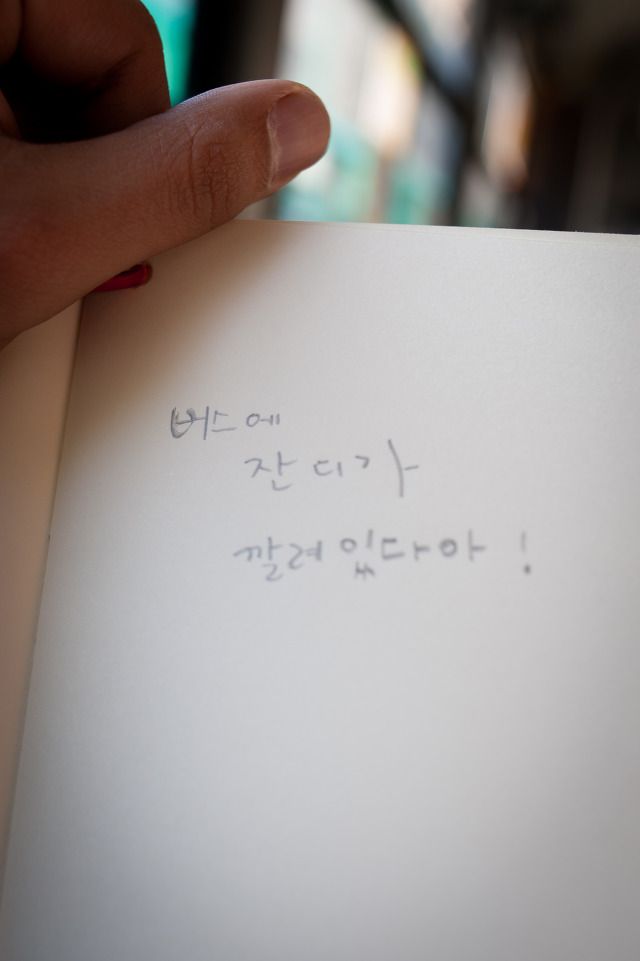 버스에
잔디가
깔려있다아!